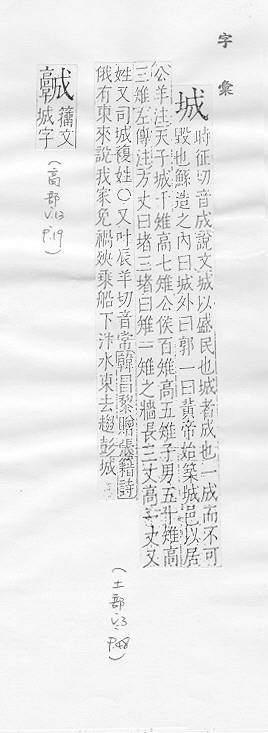 字彙
城 時征切音成說文城以盛民也城者成也一成而不可
毀也鯀造之內曰城外曰郭一曰黃帝始築城邑以居
公羊注天子城千雉高七雉公侯百雉高五雉子男五十雉高
三雉左傳注方丈曰堵三堵曰雉一雉之牆長三丈高一丈又
姓又司城複姓○又叶辰羊切音常韓昌黎贈張籍詩
俄有東來說我家免禍殃乘船下汴水東去趨彭城
(土部 v.3 p.48)
𩫨 籒文
城字
(高部 v.13 p.19)